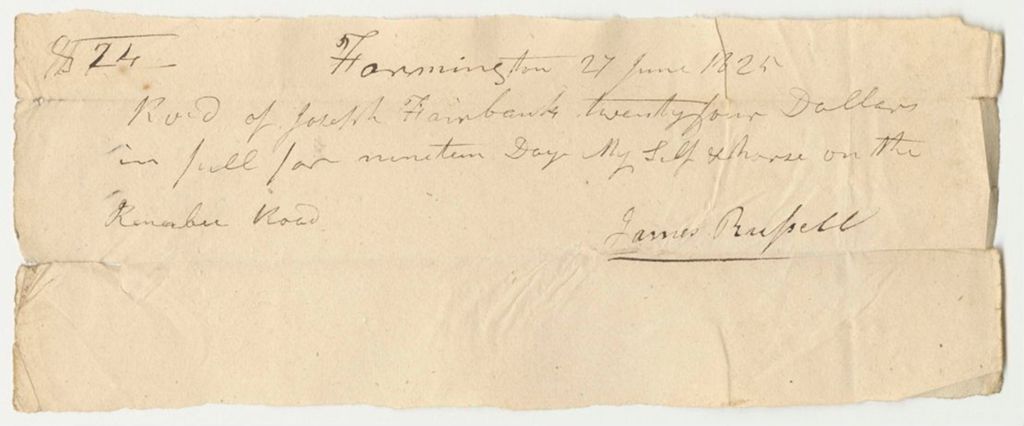 $ 24 — Farmington 27 June 1825
Recd of Joseph Fairbank twentyfour Dollars
in full for nineteen Days My Self & horse on the
Kenabec Road
James Russell